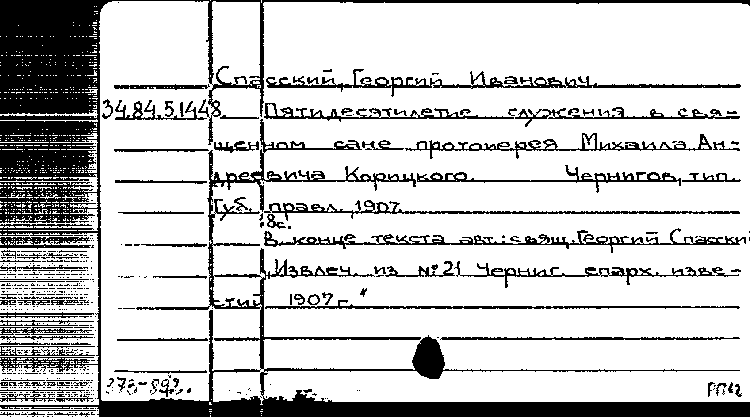 Спасский, Георгий Иванович.
34.84.5.1448. Пятидесятилетие служения в свя-
щенном сане протоиерея Михаила Ан-
дреевича Корицкого. Чернигов, тип.
Губ. правл., 1907.
8с.
В конце текста авт.: свящ. Георгий Спасский
"Извлеч. из №21 Черниг. епарх. изве-
стий 1907 г."